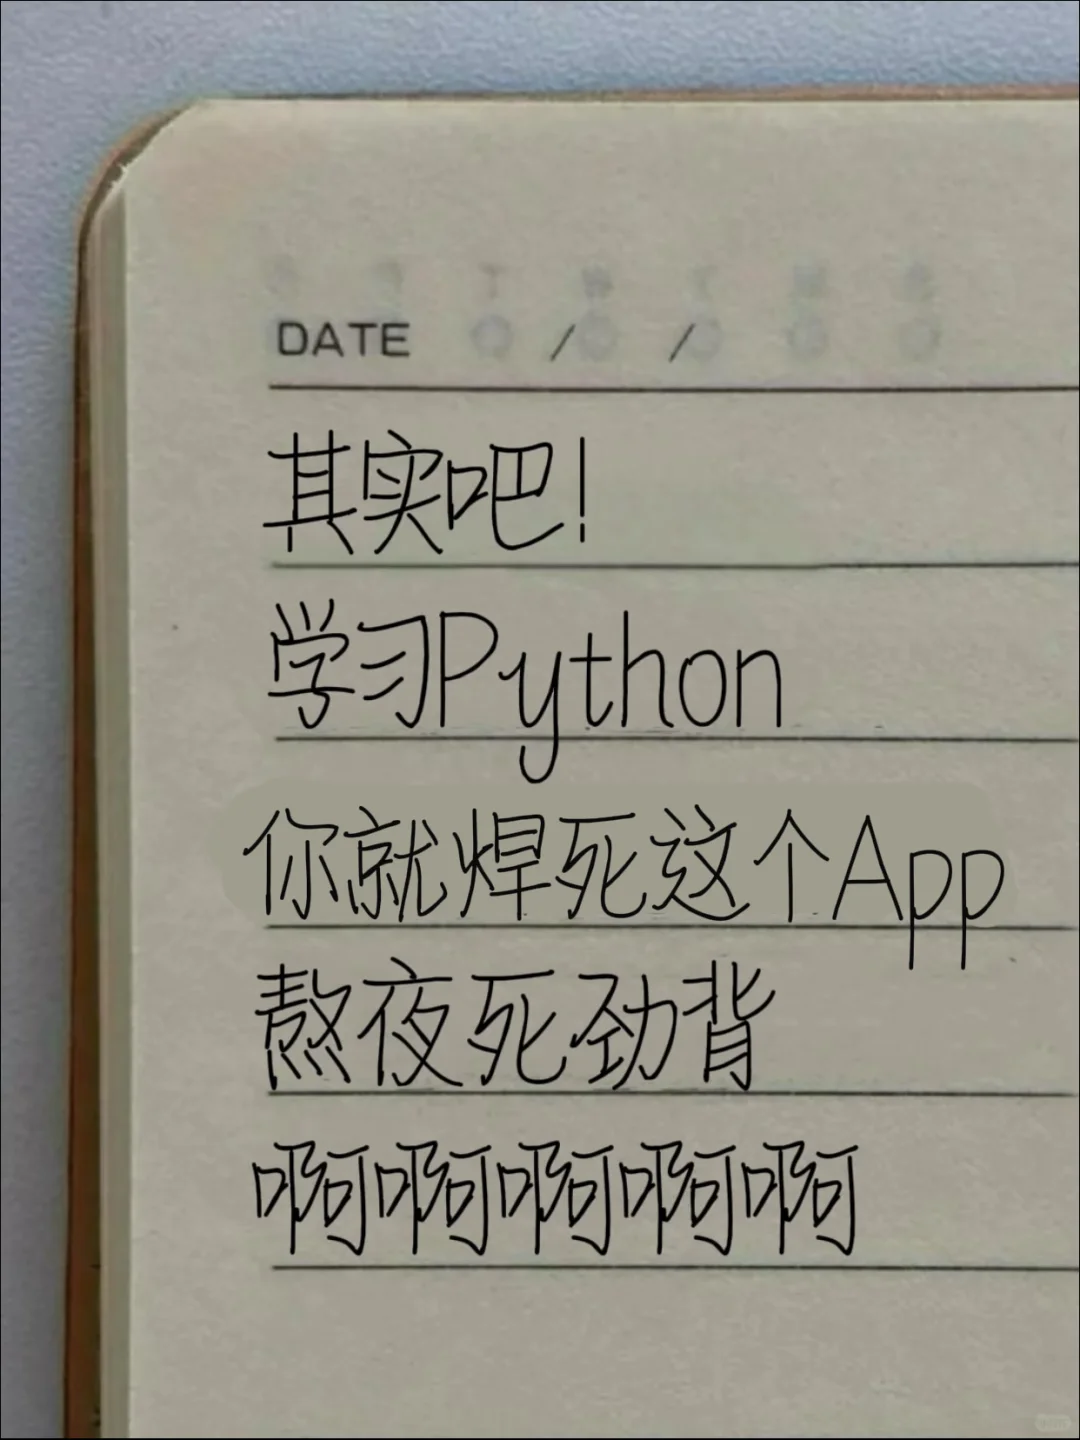 DATE / /
其实吧！
学习Python
你就焊死这个App
熬夜死劲背
啊啊啊啊啊